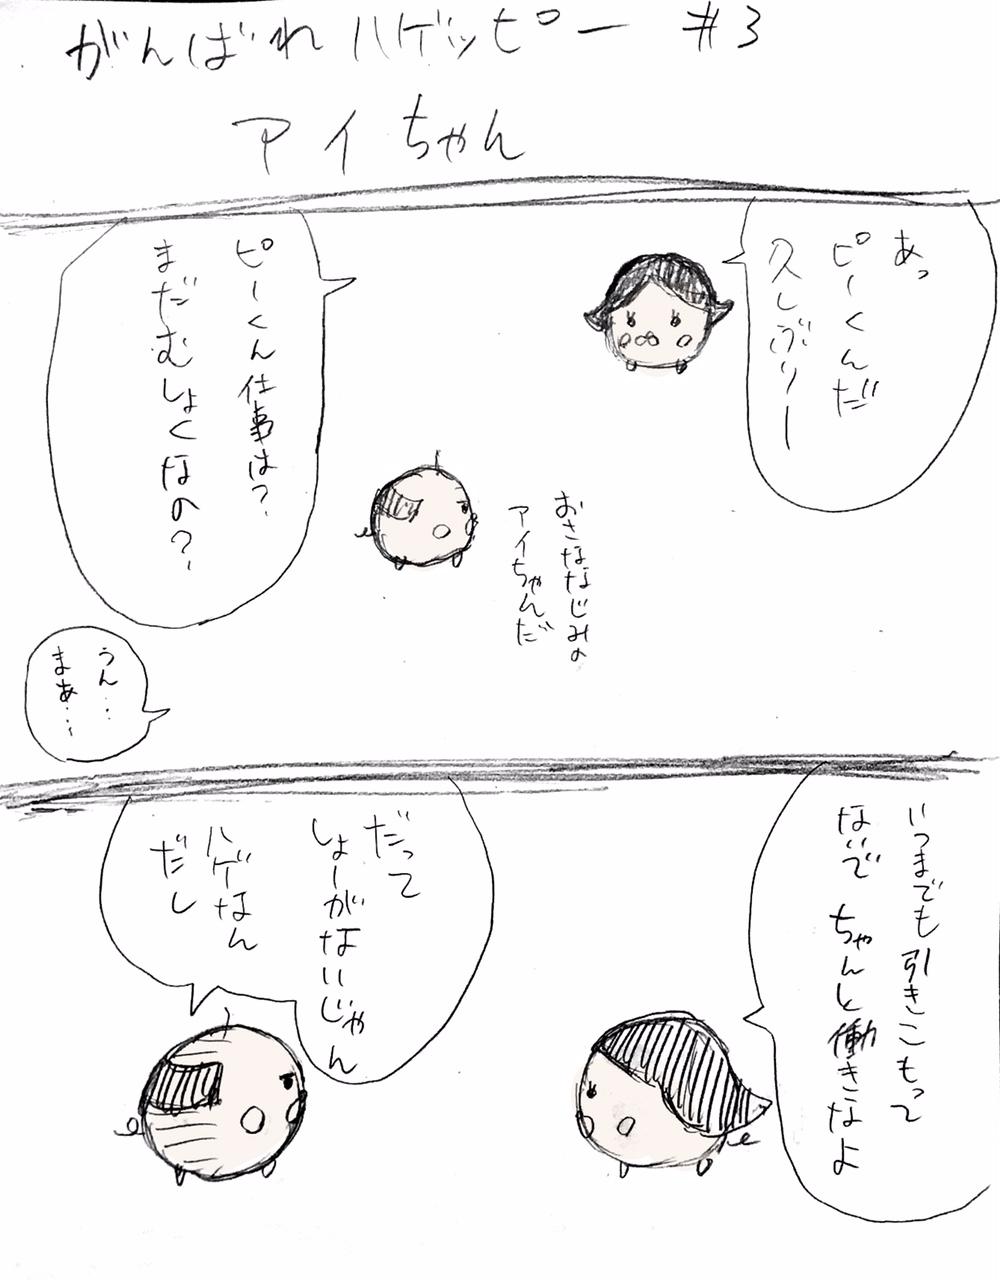 がんばれハゲッピー #3
アイちゃん
あっ
ピーくんだ
久しぶりー
おさななじみの
アイちゃんだ
ピーくん仕事は?
まだむしょくなの?
うん・・・
まぁ・・・
いつまでも引きこもって
ないでちゃんと働きなよ
だって
しょーがないじゃん
ハゲなん
だし